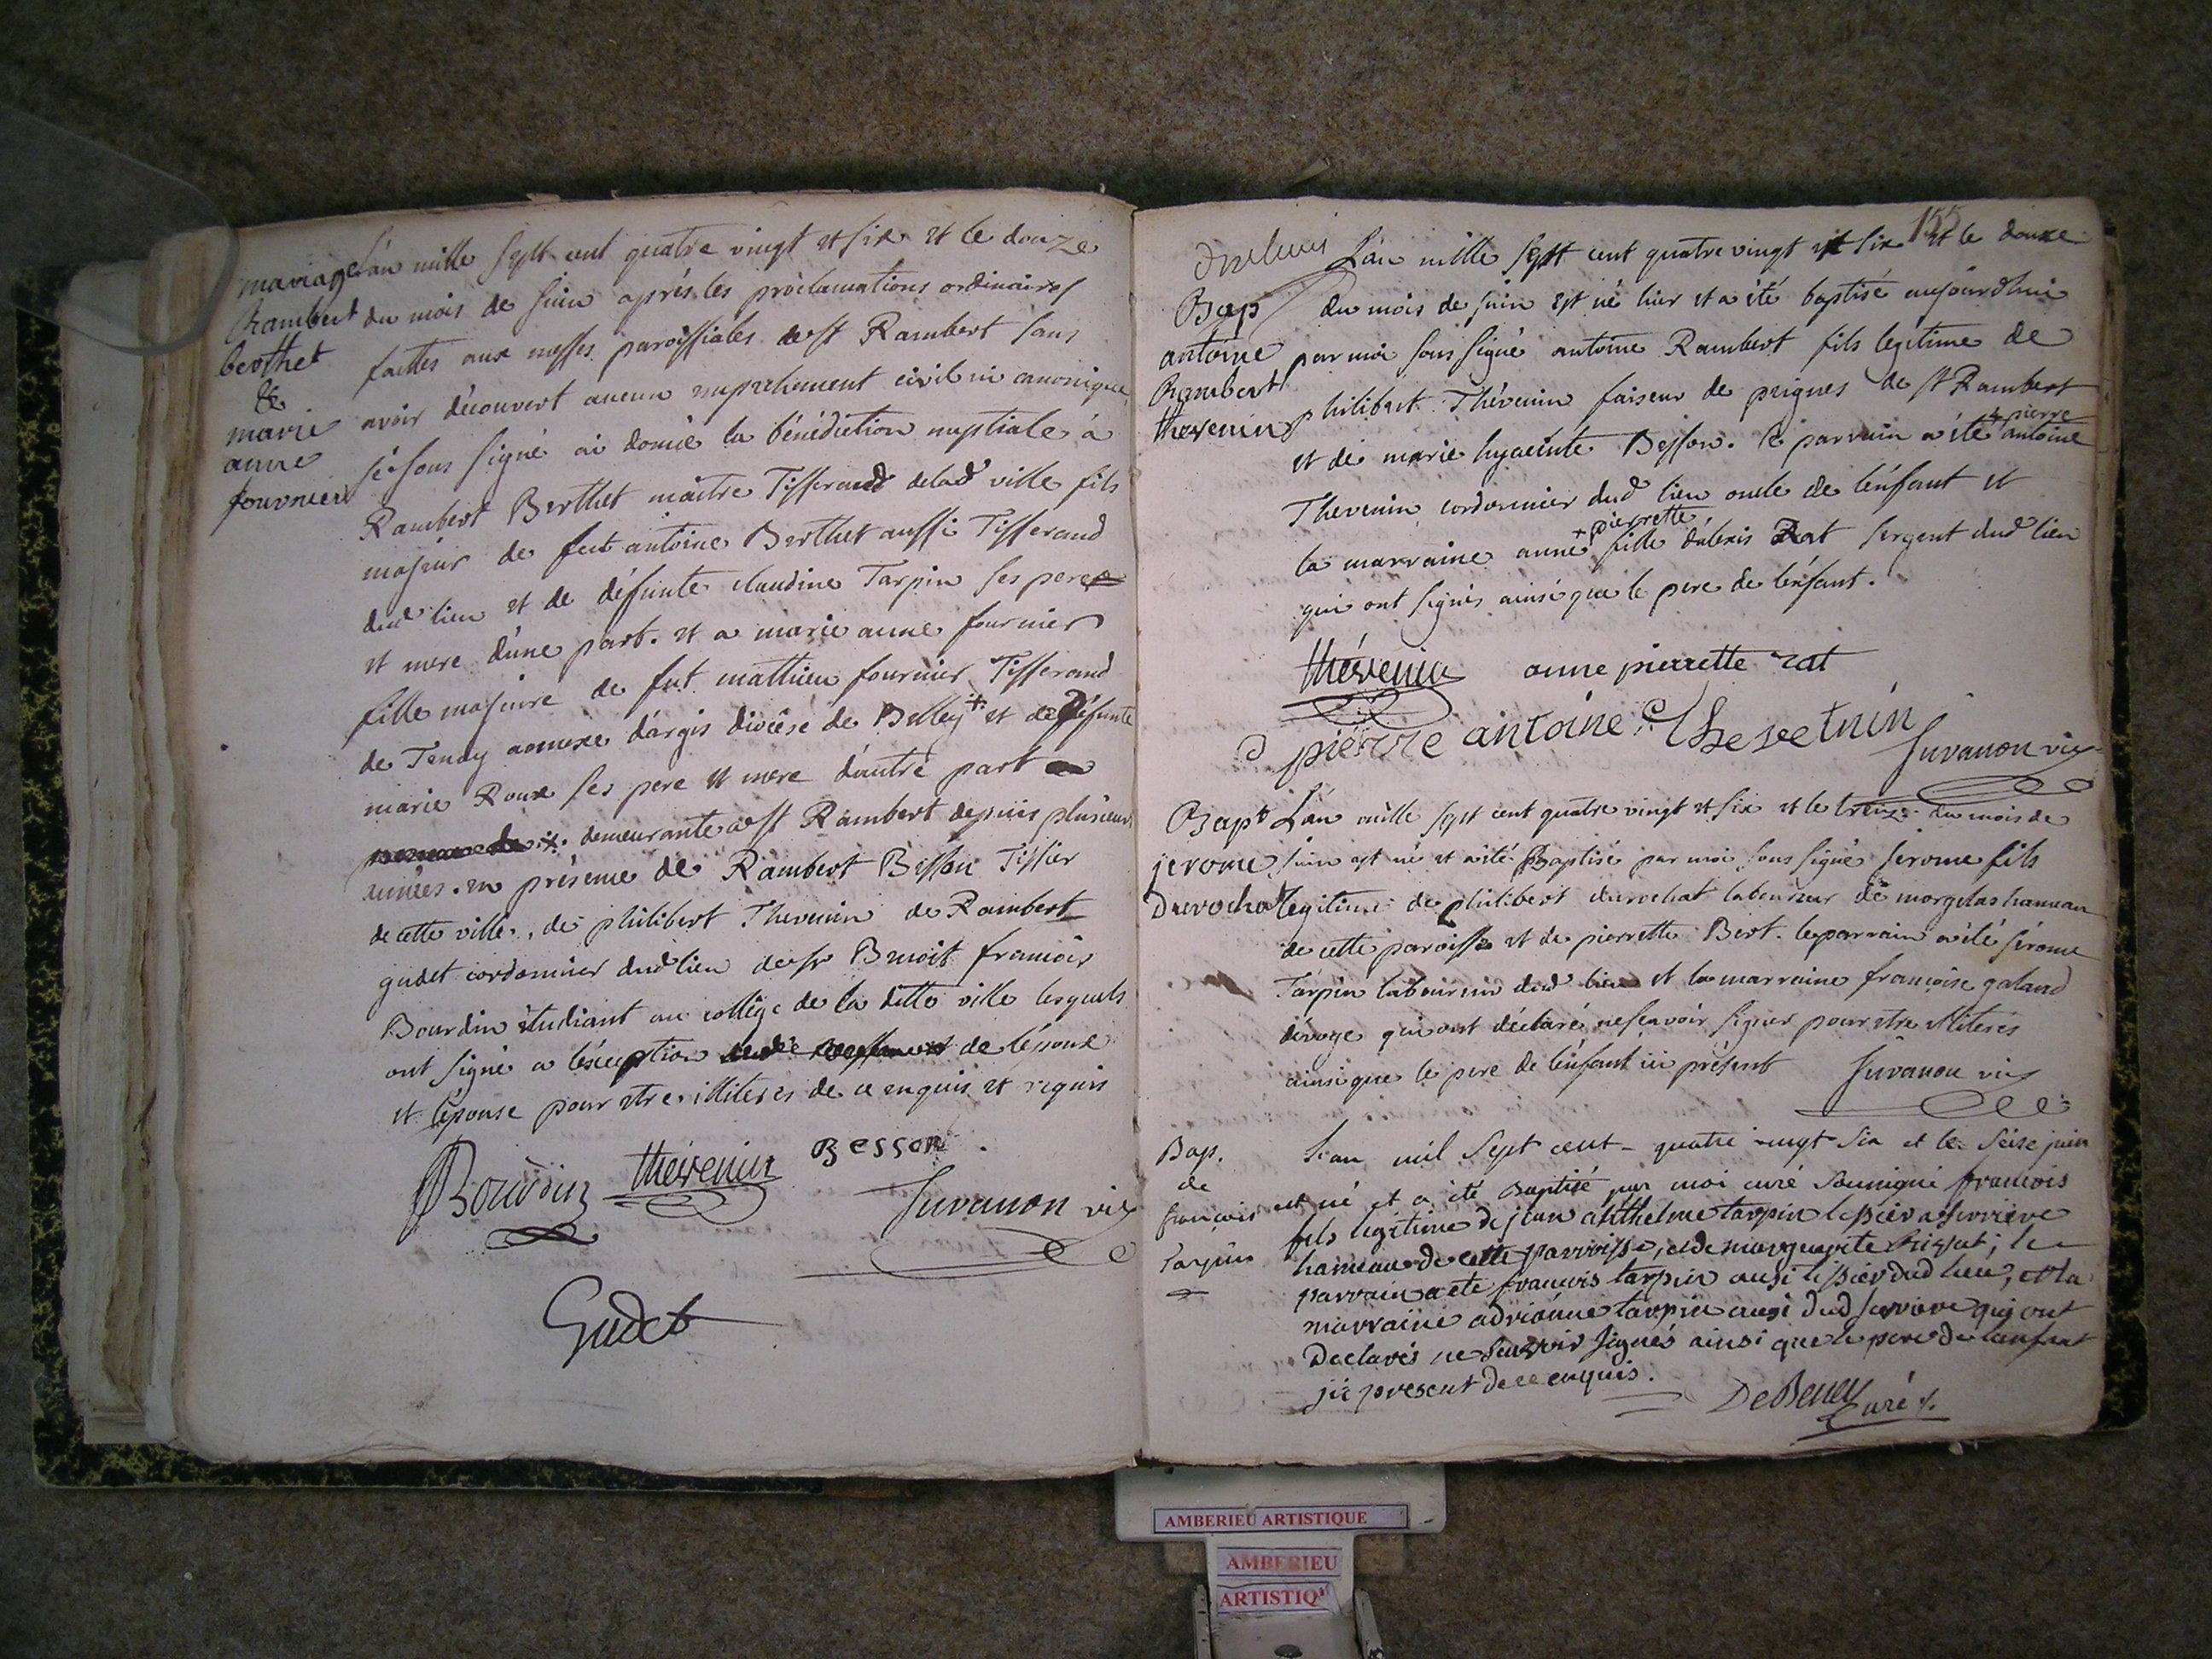 mariage
Rambert
berthet
&
marie
anne
fournier
L'an mille sept cent quatre vingt et six et le douze
du mois de juin après les proclamations ordinaires
faittes aux messes paroissiales de st Rambert sans
avoir découvert aucun empechement civil ni canonique
je sous signé ai donné la bénédiction nuptiale à
Rambert Berthet maitre Tisserand delad ville fils
majeur de feut antoine Berthet aussi Tisserand
dud lieu et de défunte claudine Tarpin ses pere
et mere d'une part. et a marie anne fournier
fille majeure de feut mathieu fournier Tisserand
de Tenay annexe d'argis diocèse de Belley + et de défunte
marie Roux ses pere et mere d'autre part
+ demeurante a st Rambert depuis plusieurs
années. en présence de Rambert Besson Tissier
de cette ville, de philibert Thevenin de Rambert
gudet cordonnier dud lieu de sr Benoit françois
Bourdin étudiant au collège de la ditte ville lesquels
ont signé a léxception de l'époux
et l'épouse pour etre illiteres de ce enquis et requis
Bourdin thévenin Besson
Juvanon vic
Gudet
155
Bap
antoine
Rambert
thevenin
L'an mille sept cent quatre vingt et six et le douze
du mois de juin est né hier et a été baptisé aujourdhui
par moi sous signé antoine Rambert fils legitime de
philibert Thévenin faiseur de peignes de st Rambert
et de marie hyacinte Besson. le parrain a été + pierre antoine
Thevenin cordonnier dud lieu oncle de l'énfant et
la marraine anne + pierrette fille d'aléxis Rat sergent dud lieu
qui ont signés ainsi que le pere de l'énfant.
thévenin anne pierrette rat
pierre antoine Thevetnin
Juvanon vic
Bapt
jerome
Durochat
L'an mille sept cent quatre vingt et six et le treize du mois de
juin est né et a été Baptisé par moi sous signé jerome fils
legitime de philibert durochat laboureur de morgelas hameau
de cette paroisse et de pierrette Bert. le parrain a été jérome
Tarpin laboureur dud lieu et la marraine françoise galand
d'oroge qui ont déclaré ne sçavoir signer pour etre illiterés
ainsi que le pere de l'énfant ici présent Juvanon vic
Bap.
de
françois
Tarpin
L'an mil sept cent quatre vingt six et le seise juin
est né et a été Baptisé par moi curé sousigné francois
fils legitime de jean anthelme tarpin tissier a serrieve
hameau de cette parroisse, et de marguerite ; le
parrain a ete francois tarpin ausi tissier dud lieu, et la
marraine adrienne tarpin ausi dud serrieve qui ont
Declarés ne scavoir signés ainsi que le pere de lenfant
ici present de ce enquis.
DeBeney
curé
AMBERIEU ARTISTIQUE
AMBERIEU
ARTISTIQ